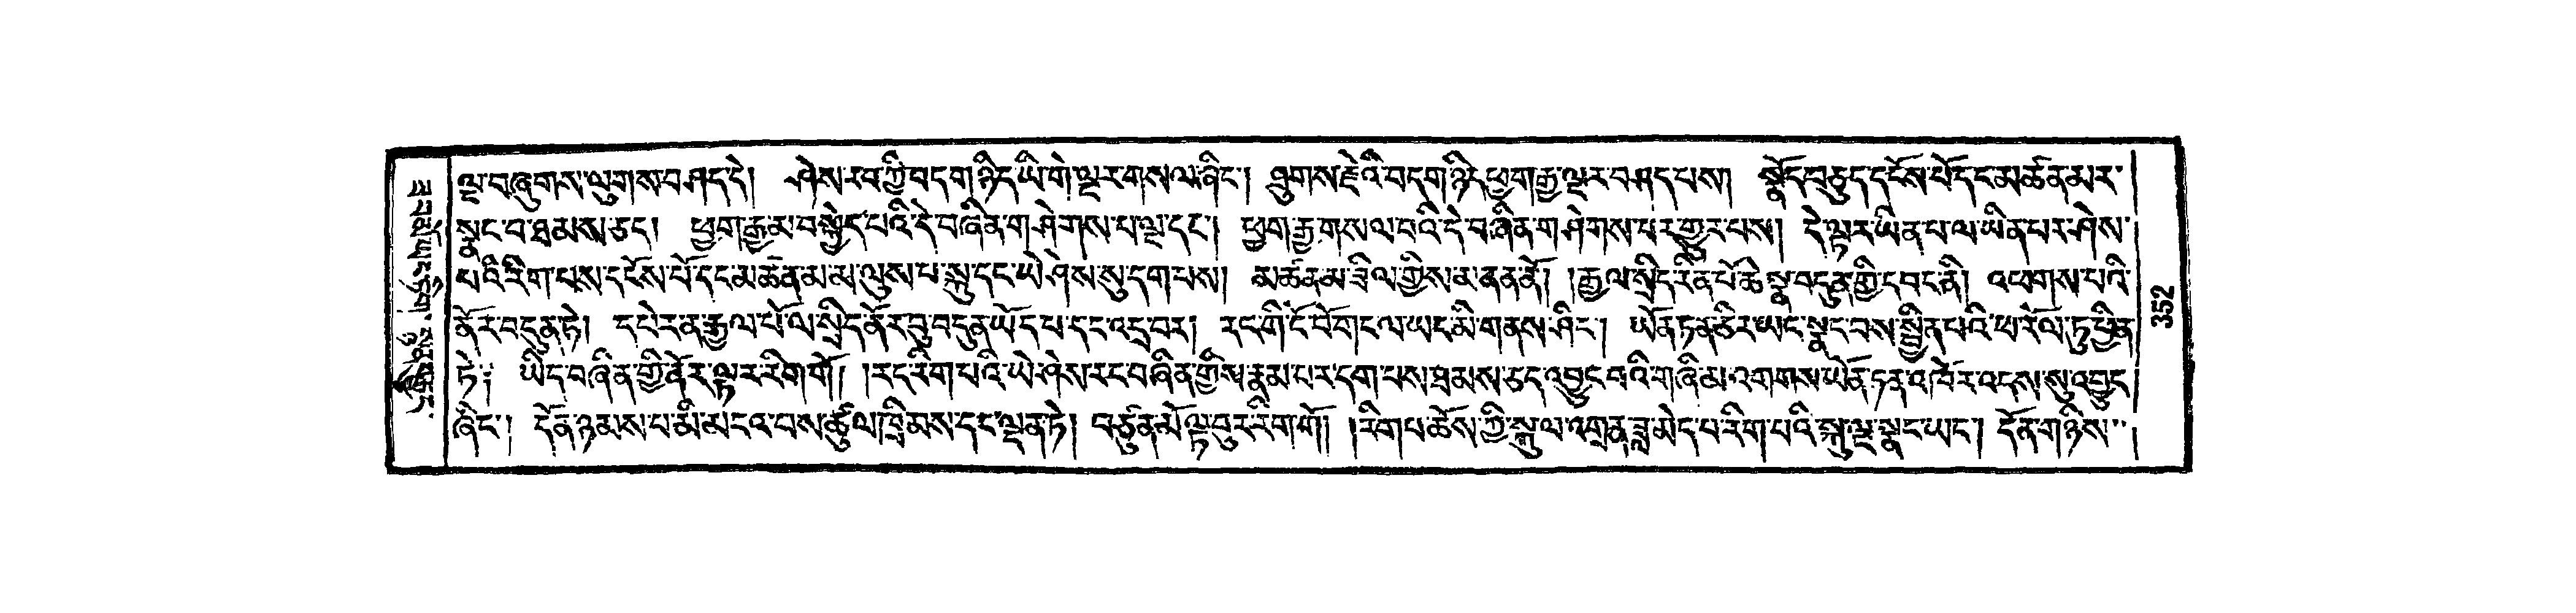 ལྟ་བཞུགས་ལུགས་བཤད་དེ། ཤེས་རབ་ཀྱི་བདག་ཉིད་ཡི་གེ་ལྟར་གསལ་ཞིང་། ཐུགས་རྗེའི་བདག་ཉིད་ཕྱག་རྒྱ་ལྟར་བཤད་པས། སྣོད་བཅུད་དངོས་པོ་དང་མཚན་མར་
སྣང་བ་ཐམས་ཅད། ཕྱག་རྒྱ་མ་བསྐྱེད་པའི་དེ་བཞིན་གཤེགས་པ་ལྟ་དང་། ཕྱག་རྒྱ་གསལ་བའི་དེ་བཞིན་གཤེགས་པར་གྱུར་པས། དེ་ལྟར་ཡིན་པ་ལ་ཡིན་པར་ཤེས་
པའི་རིག་པས་དངོས་པོ་དང་མཚན་མ་མ་ལུས་པ་སྐུ་དང་ཡེ་ཤེས་སུ་དག་པས། མཚན་མ་ཟིལ་གྱིས་མ་ནན་ནོ། །རྒྱལ་སྲིད་རིན་པོ་ཆེ་སྣ་བདུན་གྱི་དབང་ནི། འཕགས་པའི་
ནོར་བདུན་ཏེ། དཔེར་ན་རྒྱལ་པོ་ལ་སྲིད་ནོར་བུ་བདུན་ཡོད་པ་དང་འདྲ་བར། རང་གི་ངོ་བོ་གང་ལ་ཡང་མི་གནས་ཤིང་། ཡོན་ཏན་ཅིར་ཡང་སྣང་བས་སྦྱིན་པའི་ཕ་རོལ་ཏུ་ཕྱིན་
ཏེ༑ ཡིད་བཞིན་གྱི་ནོར་ལྟར་རིག་གོ། །རང་རིག་པའི་ཡེ་ཤེས་རང་བཞིན་གྱིས་རྣམ་པར་དག་པས་ཐམས་ཅད་འབྱུང་བའི་གཞི་མ་འགགས་ཡོན་ཏན་འཁོར་འདས་སུ་འབྱུང་
ཞིང་། དོན་ཉམས་པ་མི་མངའ་བས་ཚུལ་ཁྲིམས་དང་ལྡན་ཏེ། བཙུན་མོ་ལྟ་བུར་རིག་གོ། །རིག་པ་ཆོས་ཀྱི་སྐུ་ལ་འགྲན་ཟླ་མེད་པ་རིག་པའི་སྐུ་ལྔར་སྣང་ཡང་། དོན་གཉིས་